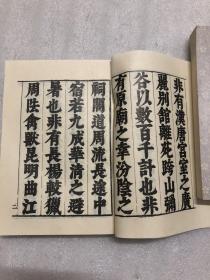 非有漢唐宮室之廣
麗別館離苑跨山彌
谷以數百千計也非
有原廟之奉汾陰之
祠關道周流長途中
宿若九成華清之避
暑也非有長楊較獵
周陡禽獸昆明曲江